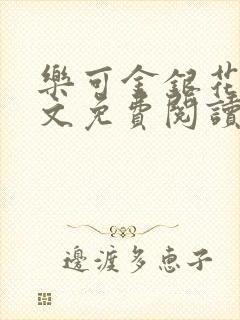 樂可金銀花
文免費閱讀
邊渡多恵子